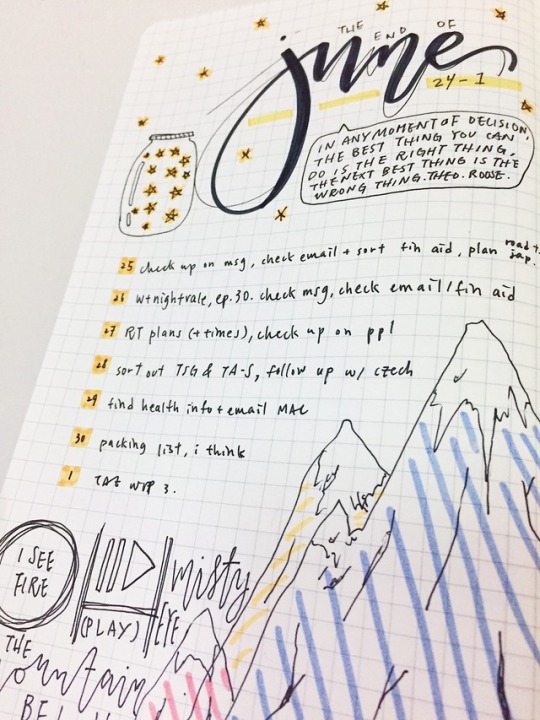 THE END OF
june
24-1
IN ANY MOMENT OF DECISION,
THE BEST THING YOU CAN
DO IS THE RIGHT THING,
THE NEXT BEST THING IS THE
WRONG THING. THEO. ROOSE.
25 check up on msg, check email + sort fin aid, plan road t. jap.
26 wtnightvale, ep. 30. check msg, check email/fin aid
27 RT plans (+times), check up on ppl
28 sort out TSG & TA-S, follow up w/ czech
29 find health info + email MAC
30 packing list, i think
1 TAZ WIP 3.
I SEE
FIRE
(PLAY)
misty
EYE
THE
mountain
BE